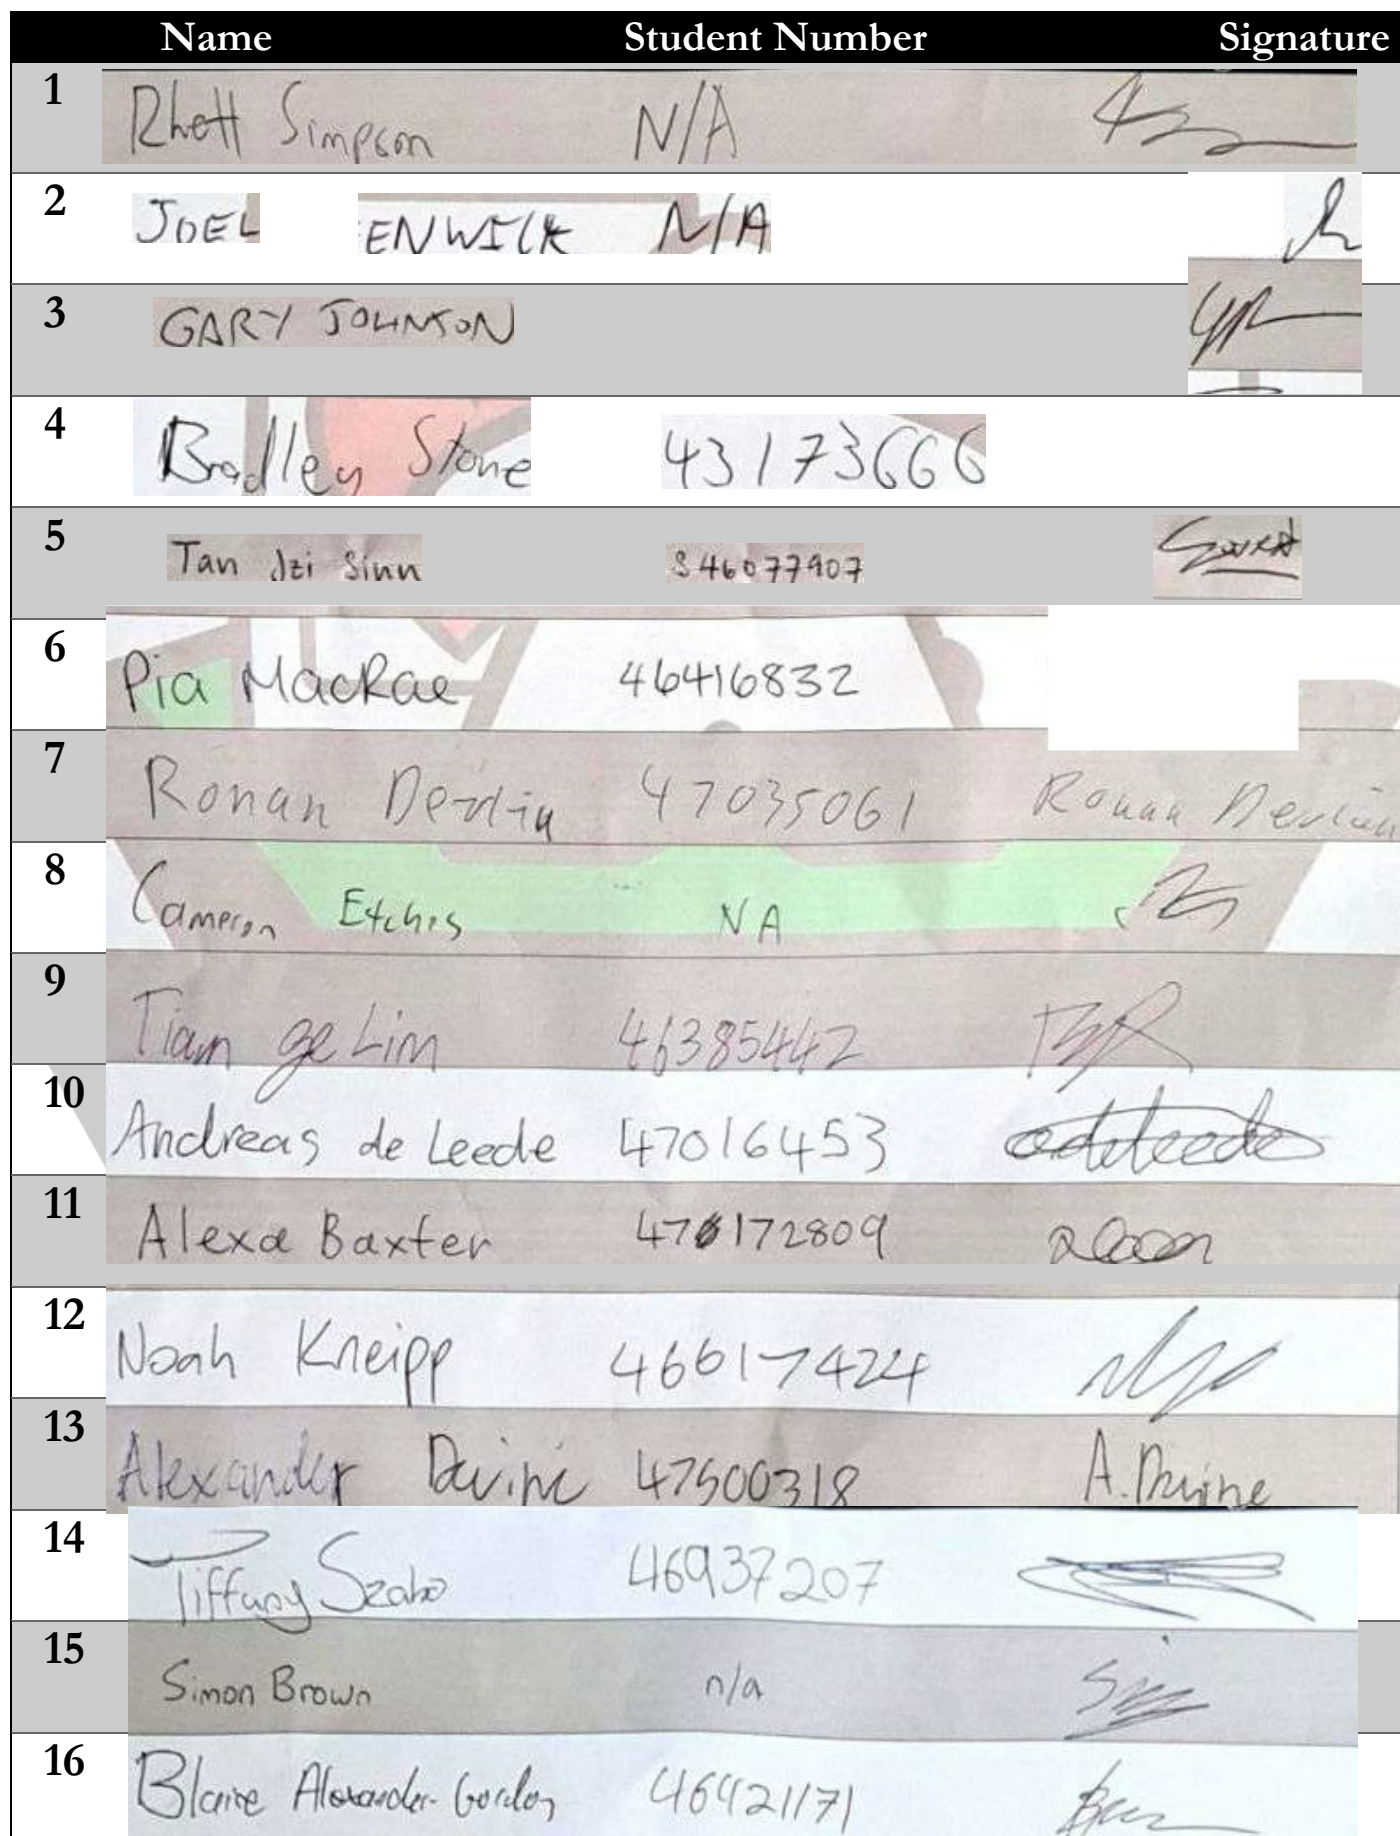 Name Student Number Signature
1 Rhett Simpson N/A
2 JOEL ENWICK N/A
3 GARY JOHNSON
4 Bradley Stone 43173666
5 Tan Jzi Sinn S46077907
6 Pia MacRae 46416832
7 Ronan Devlin 47035061 Ronan Devlin
8 Cameron Etches NA
9 Tian ge Lim 46385442
10 Andreas de Leede 47016453 adeleede
11 Alexa Baxter
12 Noah Kneipp 46617424
13 Alexander Devine 47500318 A. Devine
14 Tiffany Szabo 46937207
15 Simon Brown n/a
16 Blaise Alexander-Gordon 46421171